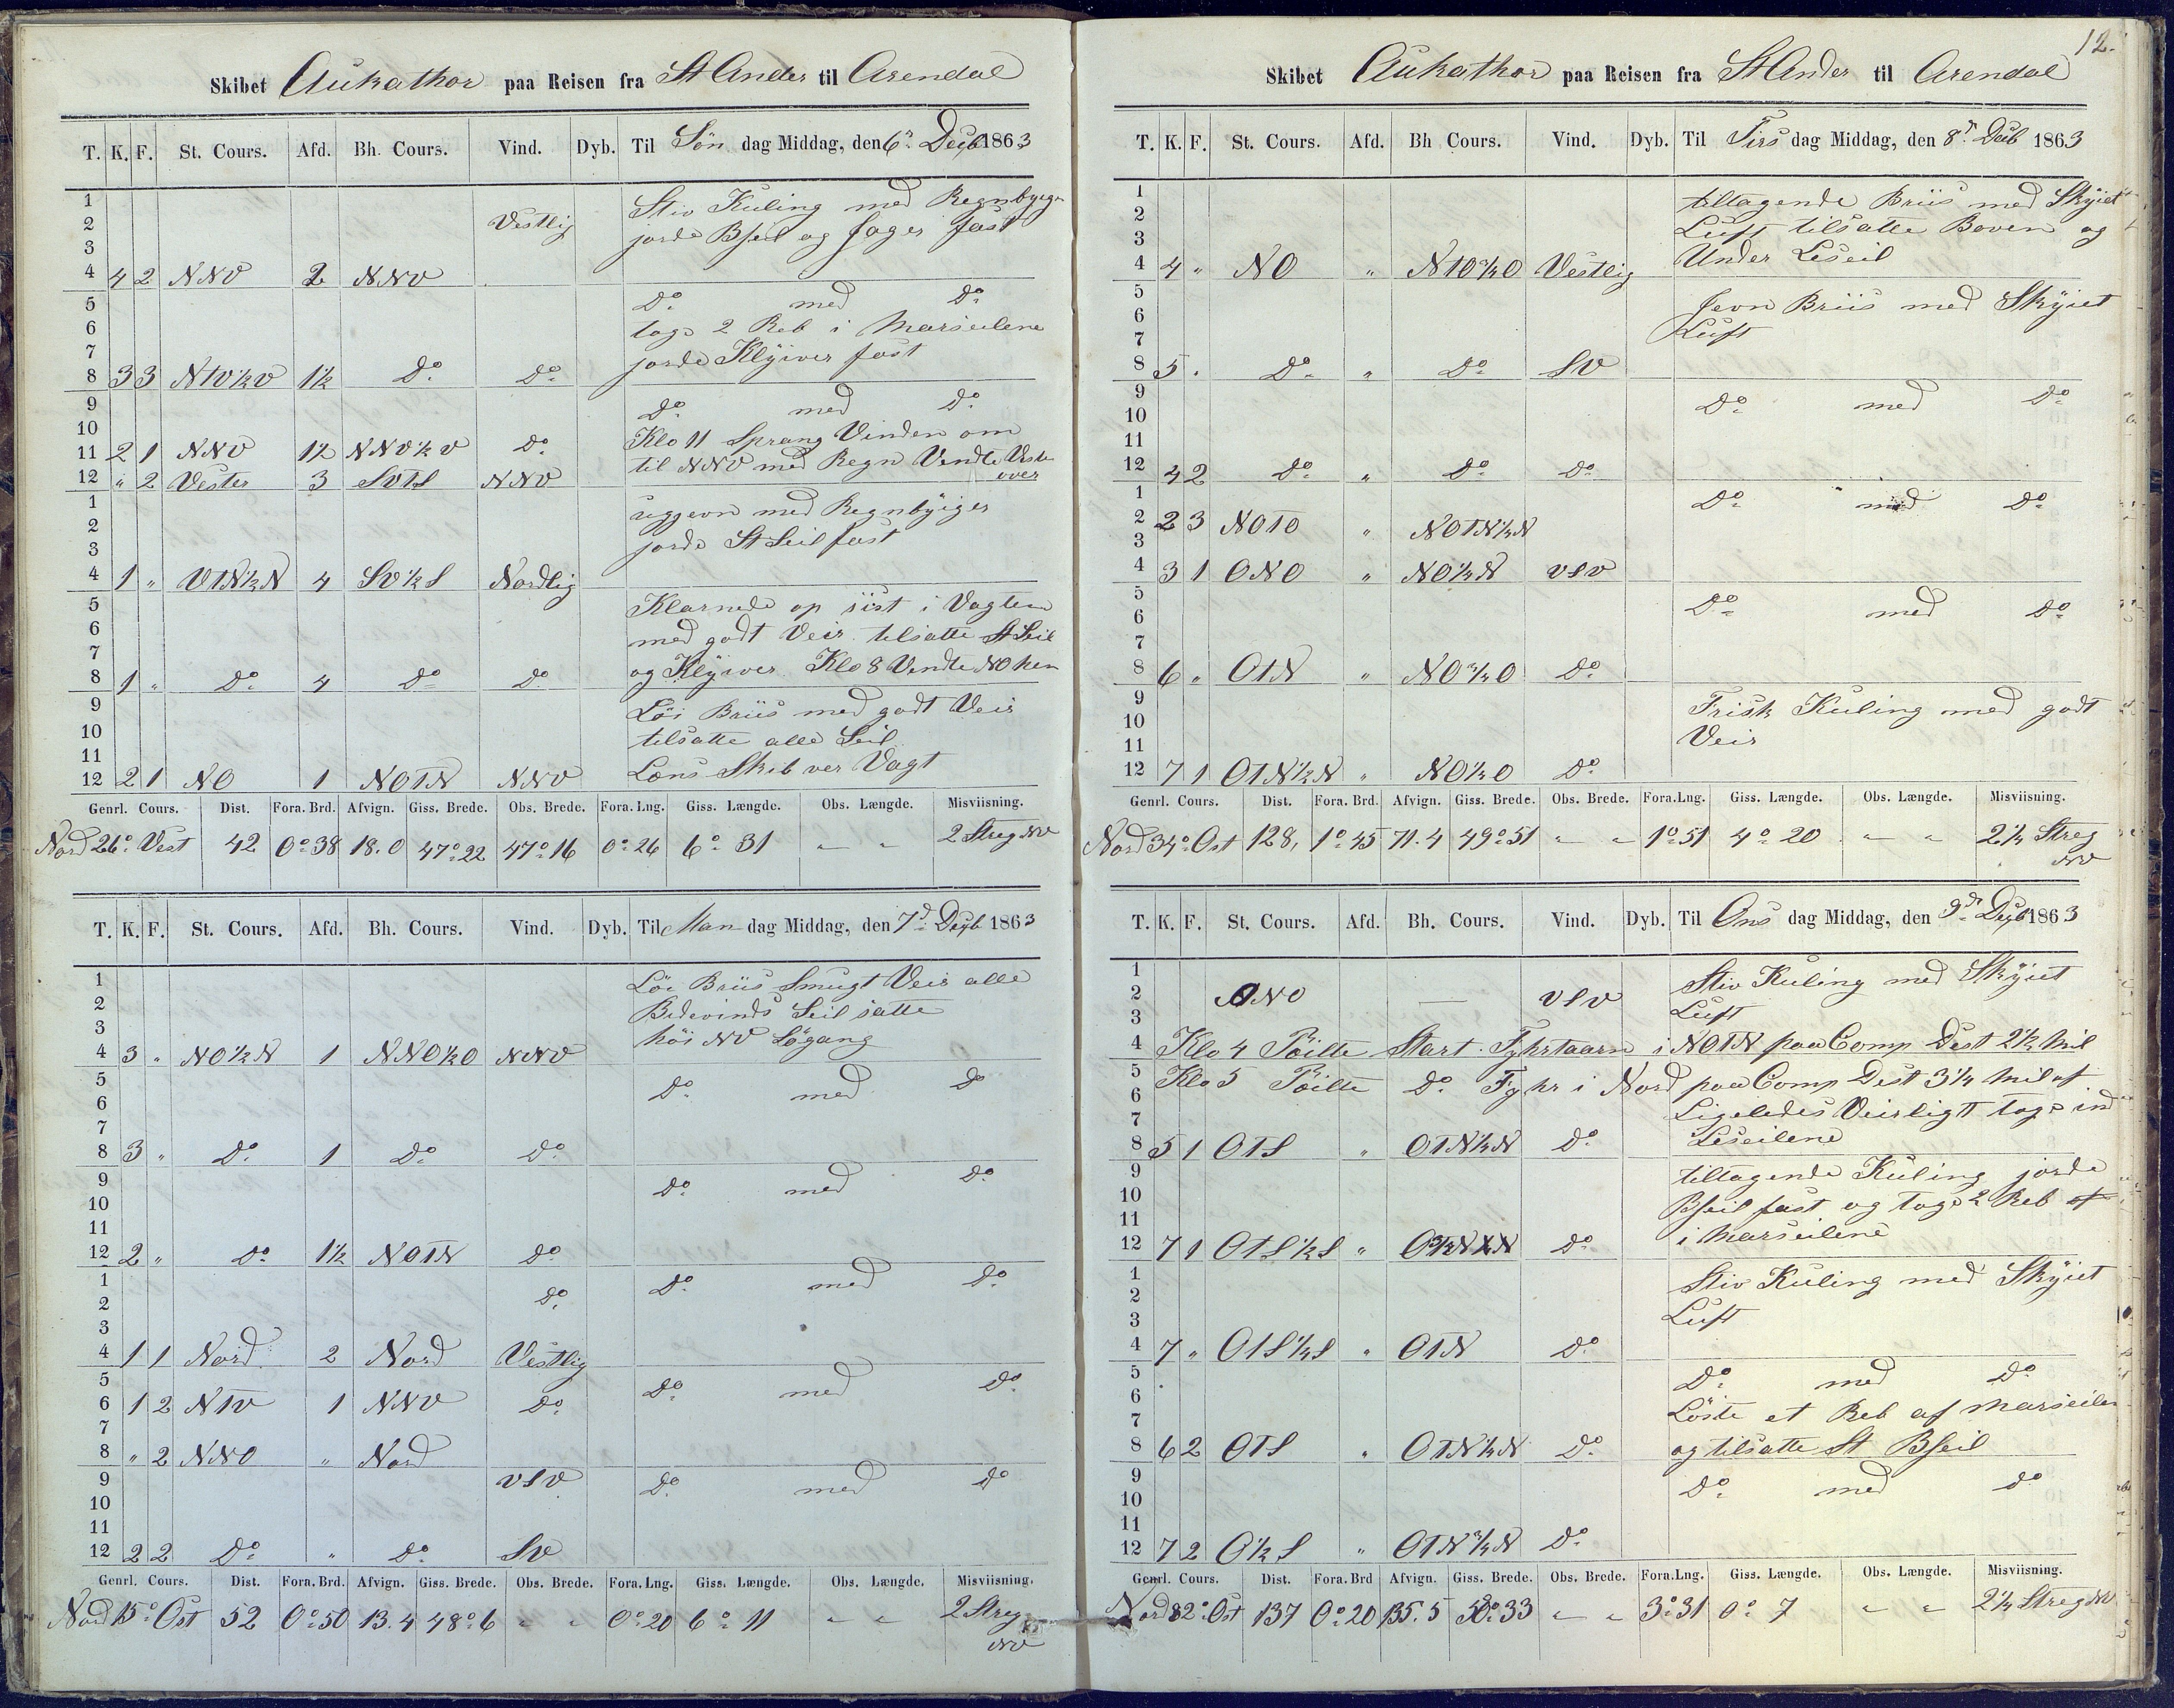 Skibet Aukathor paa Reisen fra St Ander til Arendal
T. K. F. St. Cours. Afd. Bh. Cours. Vind. Dyb. Til Søn dag Middag, den 6te Decb 1863
1 Stiv Kuling med Regnbyger
2 Vestlig jorde Bseil og Jager fast
3
4 4 2 NNV 2 NNV
5 Do med Do
6 togs 2 Reb i Marseilene
7 jorde Klÿiver fast
8 3 3 NTV½V 1½ Do Do
9 Do med Do
10 Klo 11 Sprang Vinden om
11 2 1 NNV 1½ NNV½V Do til NNV med Regn Vendte Vest
12 " 2 Vester 3 SVTS NNV over
1 uggevn med Regnbÿiger
2 jorde St Seil fast
3
4 1 " VTN½N 4 SV½S Nordlig
5 Klarnede op sist i Vagten
6 med godt Veir tilsatte St Seil
7 og Klÿiver Klo 8 Vendte NO hen
8 1 " Do 4 Do Do
9 Löi Briis med godt Veir
10 tilsatte alle Seil
11 Læns Skib ver Vagt
12 2 1 NO 1 NOTN NNV
Genrl. Cours. Dist. Fora. Brd. Afvign. Giss. Brede. Obs. Brede. Fora. Lng. Giss. Længde. Obs. Længde. Misviisning.
Nord 26° Vest 42 0°38 18.0 47°22 47°16 0°26 6° 31 " " 2 Streg NV
T. K. F. St. Cours. Afd. Bh. Cours. Vind. Dyb. Til Man dag Middag, den 7d Decb 1863
1 Löi Briis Smugt Veir alle
2 Bidevinds Seil satte
3 höi NV Sögang
4 3 " NO½N 1 NNO½O NNV
5 Do med Do
6
7
8 3 " Do 1 Do Do
9 Do med Do
10
11
12 2 " Do 1½ NOTN Do
1 Do med Do
2 Do
3
4 1 1 Nord 2 Nord Vestlig
5 Do med Do
6 1 2 NTV 1 NNV Do
7
8 " 2 NNO " Nord
9 VSV Do med Do
10
11
12 2 2 Do " Do SV
Genrl. Cours. Dist. Fora. Brd. Afvign. Giss. Brede. Obs. Brede. Fora. Lng. Giss. Længde. Obs. Længde. Misviisning.
Nord 15° Ost 52 0°50 13.4 48°6 " " 0°20 6° 11 " " 2 Streg
NV
12.
Skibet Aukathor paa Reisen fra St Ander til Arendal
T. K. F. St. Cours. Afd. Bh Cours. Vind. Dyb. Til Tirs dag Middag, den 8de Decb 1863
1 tiltagende Briis med Skÿiet
2 Luft tilsatte Boven og
3 Under Leseil
4 4 " NO " NTO¾O Vestlig
5 Jevn Briis med Skÿiet
6 Luft
7
8 5 . Do " Do SV
9 Do med Do
10
11
12 4 2 Do " Do Do
1 Do med Do
2 2 3 NOTO " NOTN¼N
3
4 3 1 ONO " NO¼N VSV
5 Do med Do
6
7
8 6 " OTN " NO¾O Do
9 Frisk Kuling med godt
10 Veir
11
12 7 1 OTN½N " NO¼O Do
Genrl. Cours. Dist. Fora. Brd. Afvign. Giss. Brede. Obs. Brede. Fora. Lng. Giss. Længde. Obs. Længde. Misviisning.
Nord 34° Ost 128, 1°45 71.4 49°51 " " 1°51 4° 20 " " 2¼ Streg
NV
T. K. F. St. Cours. Afd. Bh. Cours. Vind. Dyb. Til Ons dag Middag, den 9de Decb 1863
1 Stiv Kuling med Skÿiet
2 ONO — VSV Luft
3
4 Klo 4 Pöilte Start Fyhrtaarn i NOTN paa Comp Dist 2½ Mil
5 Klo 5 Pöilte Do Fyhr i Nord paa Comp Dist 3¼ Mil af
6 Ligeledes Veirligt togs ind
7 Leseilene
8 5 1 OTS " OTN¼N Do
9 tiltagende Kuling jorde
10 Bseil fast og togs 2 Reb af
11 i Marseilene
12 7 1 OTS½S " Do
1 Stiv Kuling med Skÿiet
2 Luft
3
4 7 " OTS¼S " OTN Do
5 Do med Do
6 Löste et Reb af Marseilen
7
8 6 2 OTS " OTN¼N Do og tilsatte St Bseil
9 Do med Do
10
11
12 7 2 O½S " OTN¾N Do
Genrl. Cours. Dist. Fora. Brd Afvign. Giss. Brede. Obs. Brede. Fora. Lng. Giss. Længde. Obs. Længde. Misviisning.
Nord 82° Ost 137 0°20 135.5 50°33 " " 3°31 0° 7 " " 2¼ Streg NV